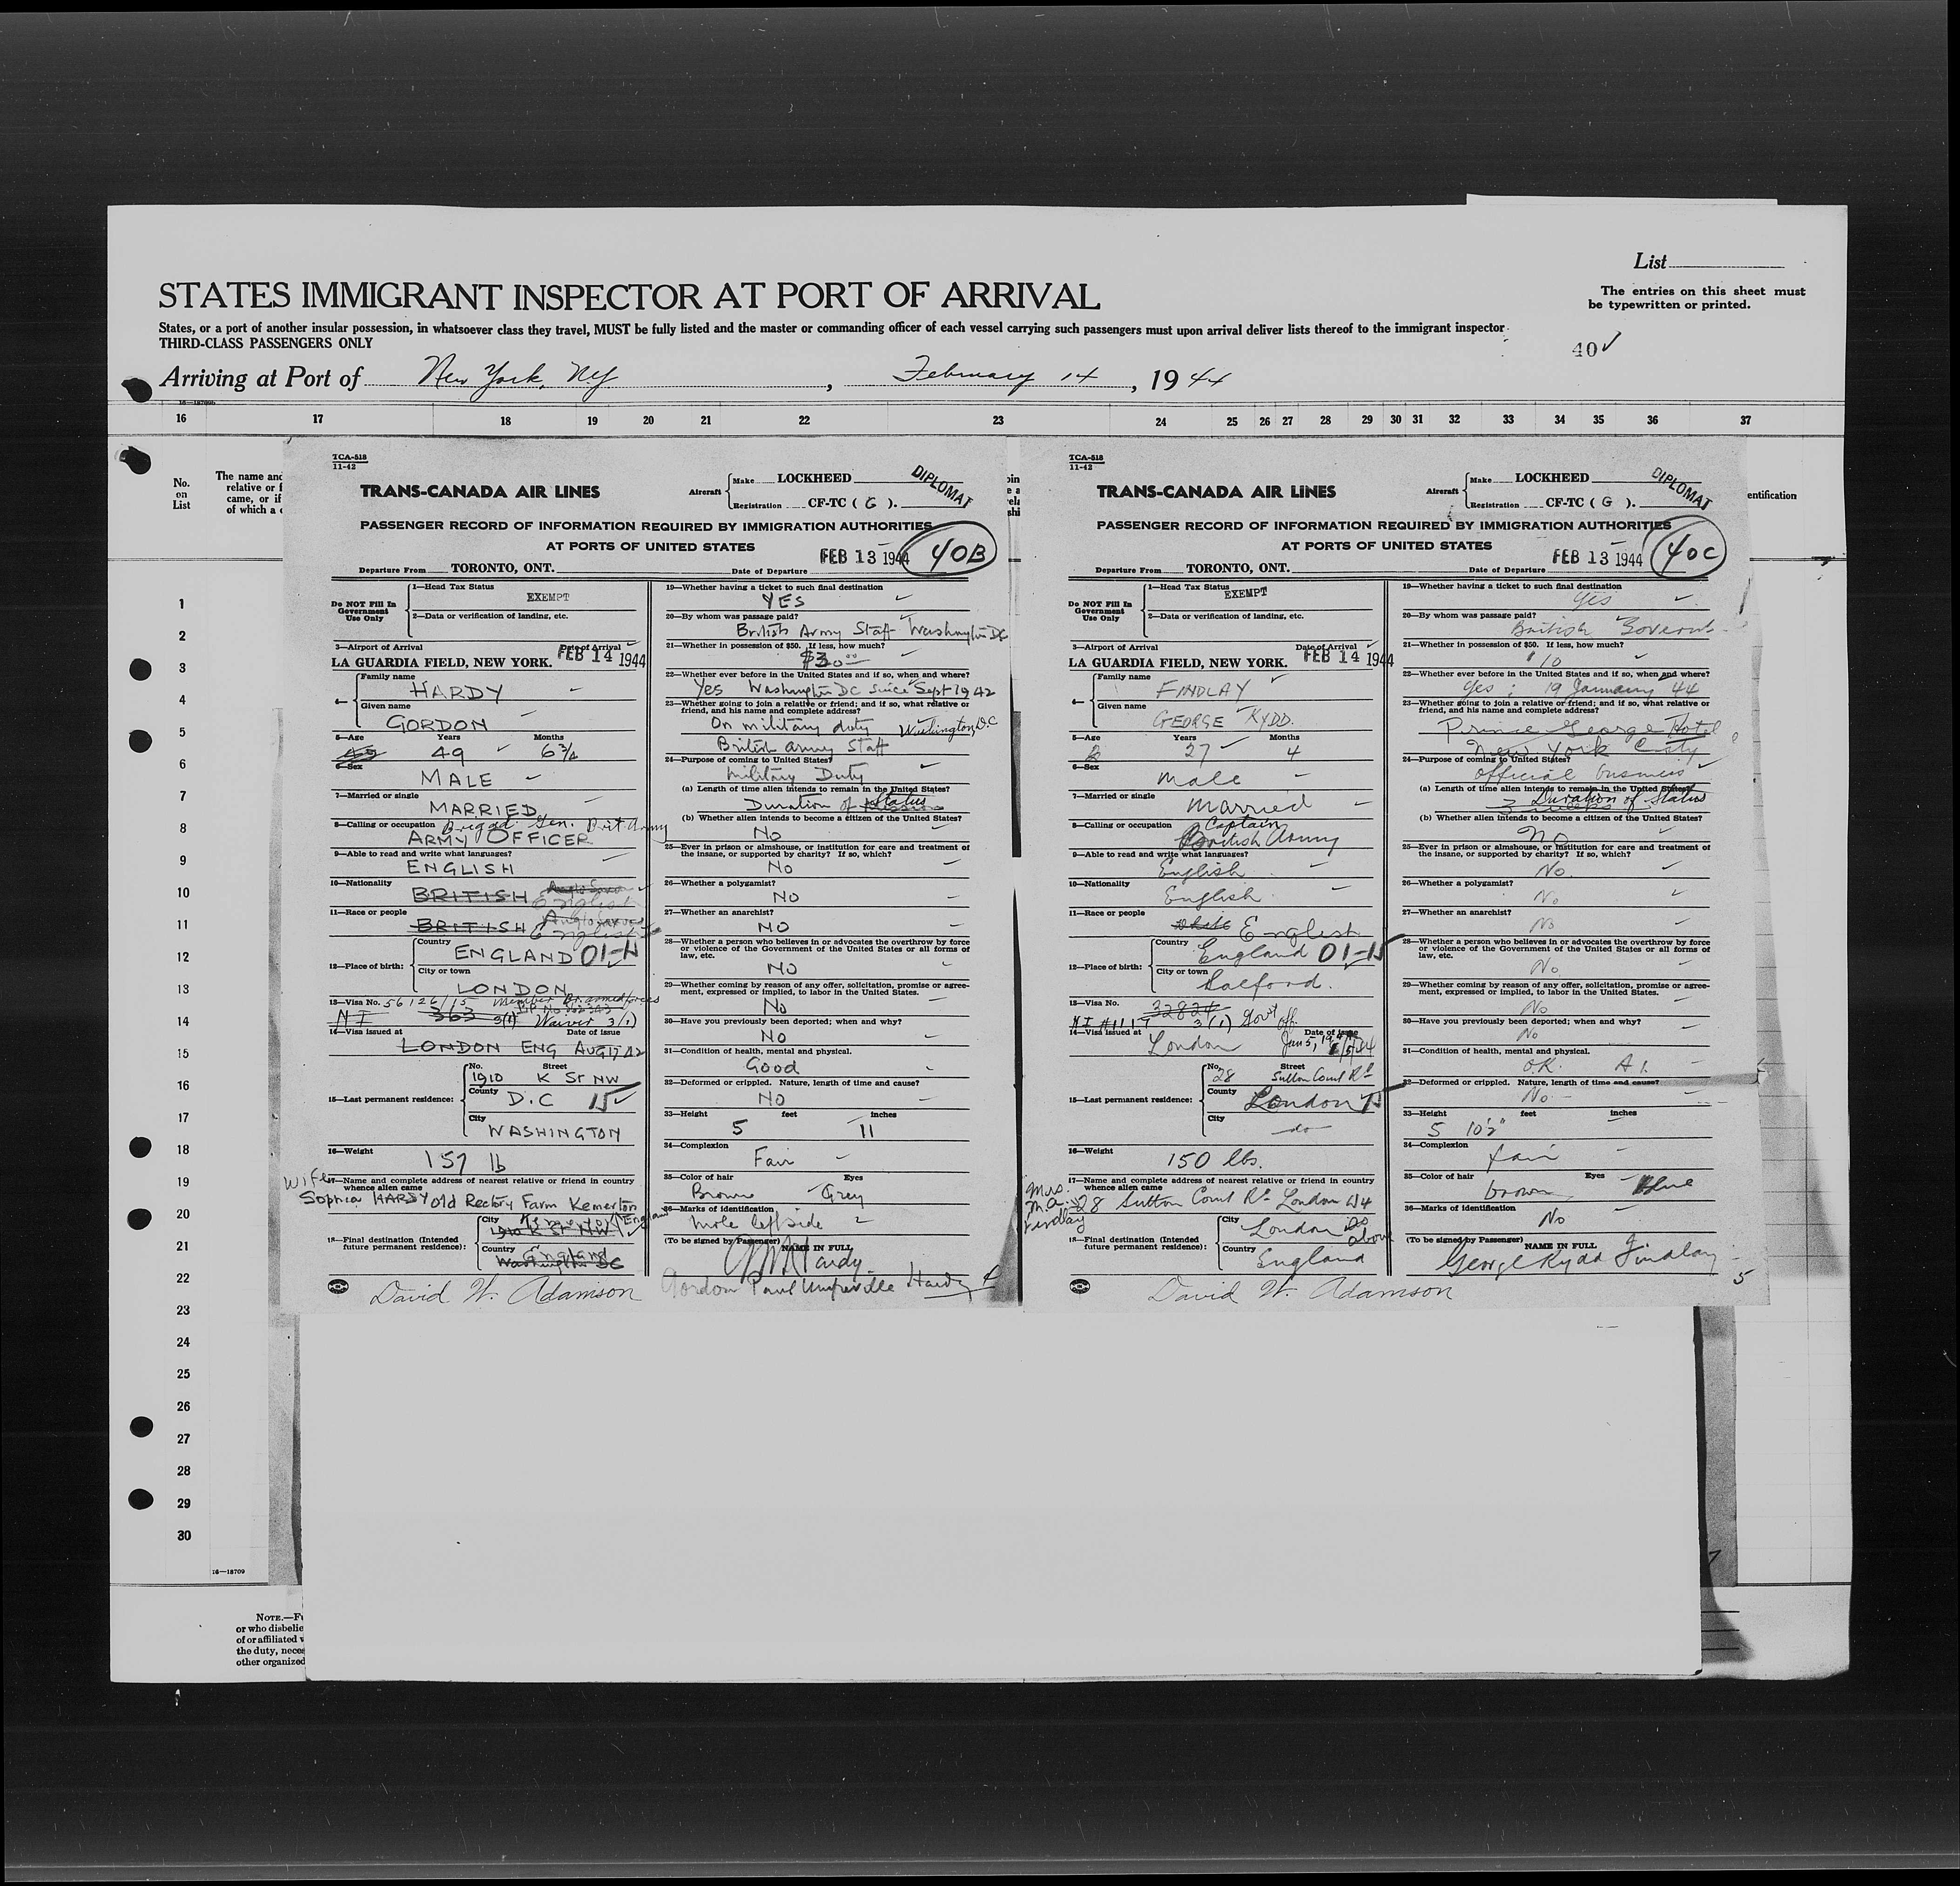 List
The entries on this sheet must
be typewritten or printed.
STATES IMMIGRANT INSPECTOR AT PORT OF ARRIVAL
States, or a port of another insular possession, in whatsoever class they travel, MUST be fully listed and the master or commanding officer of each vessel carrying such passengers must upon arrival deliver lists thereof to the immigrant inspector
THIRD-CLASS PASSENGERS ONLY
40
Arriving at Port of New York, NY, February 14, 1944
16 17 18 19 20 21 22 23 24 25 26 27 28 29 30 31 32 33 34 35 36 37
No.
on
List
The name and
relative or f
came, or if
of which a c
entification
TCA-518
11-42
TRANS-CANADA AIR LINES
Aircraft
Make LOCKHEED
Registration CF-TC ( G ).
DIPLOMAT
PASSENGER RECORD OF INFORMATION REQUIRED BY IMMIGRATION AUTHORITIES
AT PORTS OF UNITED STATES
FEB 13 1944
40B
Departure From TORONTO, ONT.
Date of Departure
Do NOT Fill In
Government
Use Only
1—Head Tax Status
EXEMPT
2—Data or verification of landing, etc.
3—Airport of Arrival
Date of Arrival
LA GUARDIA FIELD, NEW YORK. FEB 14 1944
4—
Family name
HARDY
Given name
GORDON
5—Age Years Months
49 49 6¾
6—Sex
MALE
7—Married or single
MARRIED
8—Calling or occupation Brigad. Gen. Brit Army
ARMY OFFICER
9—Able to read and write what languages?
ENGLISH
10—Nationality
BRITISH English
11—Race or people
BRITISH English
12—Place of birth:
Country
ENGLAND 01-H
City or town
LONDON
13—Visa No. 56126/15 Member Br. armed forces
NI 363 3(1) Waiver 3/1)
14—Visa issued at Date of issue
LONDON ENG AUG 17 42
15—Last permanent residence:
No. Street
1910 K St NW
County
D.C 15
City
WASHINGTON
16—Weight
157 lb
17—Name and complete address of nearest relative or friend in country
whence alien came
Wife
Sophia HARDY Old Rectory Farm Kemerton
England
18—Final destination (Intended
future permanent residence):
City
Kemerton
1910 K St NW
Country
England
Washington DC
David W. Adamson
19—Whether having a ticket to such final destination
YES
20—By whom was passage paid?
British Army Staff Washington DC
21—Whether in possession of $50. If less, how much?
$30.00
22—Whether ever before in the United States and if so, when and where?
Yes Washington DC since Sept 1942
23—Whether going to join a relative or friend; and if so, what relative or
friend, and his name and complete address?
On military duty Washington D.C
British army Staff
24—Purpose of coming to United States?
Military Duty
(a) Length of time alien intends to remain in the United States?
Duration of Status
(b) Whether alien intends to become a citizen of the United States?
No
25—Ever in prison or almshouse, or institution for care and treatment of
the insane, or supported by charity? If so, which?
No
26—Whether a polygamist?
No
27—Whether an anarchist?
NO
28—Whether a person who believes in or advocates the overthrow by force
or violence of the Government of the United States or all forms of
law, etc.
NO
29—Whether coming by reason of any offer, solicitation, promise or agree-
ment, expressed or implied, to labor in the United States.
No
30—Have you previously been deported; when and why?
No
31—Condition of health, mental and physical.
Good
32—Deformed or crippled. Nature, length of time and cause?
No
33—Height feet inches
5 11
34—Complexion
Fair
35—Color of hair Eyes
Brown Grey
36—Marks of identification
mole left side
(To be signed by Passenger) NAME IN FULL
Hardy
Gordon Paul Umfreville Hardy
TCA-518
11-42
TRANS-CANADA AIR LINES
Aircraft
Make LOCKHEED
Registration CF-TC ( G ).
DIPLOMAT
PASSENGER RECORD OF INFORMATION REQUIRED BY IMMIGRATION AUTHORITIES
AT PORTS OF UNITED STATES
FEB 13 1944
40C
Departure From TORONTO, ONT.
Date of Departure
Do NOT Fill In
Government
Use Only
1—Head Tax Status
EXEMPT
2—Data or verification of landing, etc.
3—Airport of Arrival
Date of Arrival
LA GUARDIA FIELD, NEW YORK. FEB 14 1944
Family name
FINDLAY
Given name
GEORGE KYDD.
5—Age Years Months
27 4
6—Sex
Male
7—Married or single
Married
8—Calling or occupation Captain
British Army
9—Able to read and write what languages?
English
10—Nationality
English
11—Race or people
white English
12—Place of birth:
Country
England 01-15
City or town
Salford.
13—Visa No.
32824
NI #1117 3(1) Gov't off.
14—Visa issued at Date of issue
London Jan 5, 1944
15—Last permanent residence:
No. Street
28 Sutton Court Rd
County
London 15
City
do
16—Weight
150 lbs.
17—Name and complete address of nearest relative or friend in country
whence alien came
Mrs.
M.A.
Findlay
28 Sutton Court Rd London W4
18—Final destination (Intended
future permanent residence):
City
London as above
Country
England
David W. Adamson
19—Whether having a ticket to such final destination
Yes
20—By whom was passage paid?
British Governt.
21—Whether in possession of $50. If less, how much?
$10
22—Whether ever before in the United States and if so, when and where?
Yes; 19 January 44
23—Whether going to join a relative or friend; and if so, what relative or
friend, and his name and complete address?
Prince George Hotel
New York City
24—Purpose of coming to United States?
official business
(a) Length of time alien intends to remain in the United States?
3 weeks Duration of Status
(b) Whether alien intends to become a citizen of the United States?
No
25—Ever in prison or almshouse, or institution for care and treatment of
the insane, or supported by charity? If so, which?
No.
26—Whether a polygamist?
No
27—Whether an anarchist?
No
28—Whether a person who believes in or advocates the overthrow by force
or violence of the Government of the United States or all forms of
law, etc.
No
29—Whether coming by reason of any offer, solicitation, promise or agree-
ment, expressed or implied, to labor in the United States.
No
30—Have you previously been deported; when and why?
No
31—Condition of health, mental and physical.
OK. A1.
32—Deformed or crippled. Nature, length of time and cause?
No
33—Height feet inches
5 10½"
34—Complexion
fair
35—Color of hair Eyes
brown Blue
36—Marks of identification
No
(To be signed by Passenger) NAME IN FULL
George Kydd Findlay
5
1
2
3
4
5
6
7
8
9
10
11
12
13
14
15
16
17
18
19
20
21
22
23
24
25
26
27
28
29
30
16—18709
NOTE.—Fu
or who disbelie
of or affiliated w
the duty, neces
other organized